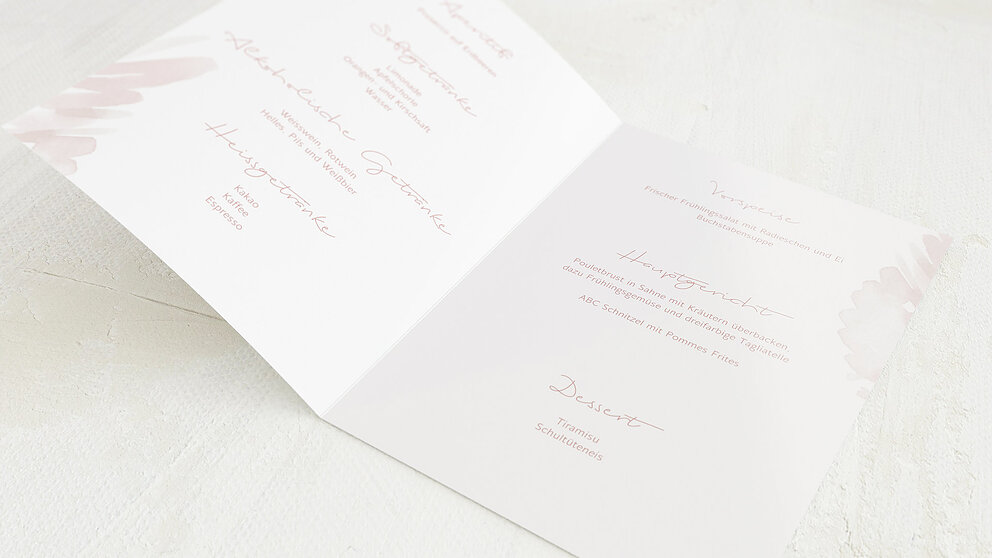 Aperitif
Prosecco mit Erdbeeren
Softgetränke
Limonade
Apfelschorle
Orangen- und Kirschsaft
Wasser
Alkoholische Getränke
Weisswein, Rotwein
Helles, Pils und Weißbier
Heissgetränke
Kakao
Kaffee
Espresso
Vorspeise
Frischer Frühlingssalat mit Radieschen und Ei
Buchstabensuppe
Hauptgericht
Pouletbrust in Sahne mit Kräutern überbacken,
dazu Frühlingsgemüse und dreifarbige Tagliatelle
ABC Schnitzel mit Pommes Frites
Dessert
Tiramisu
Schultüteneis